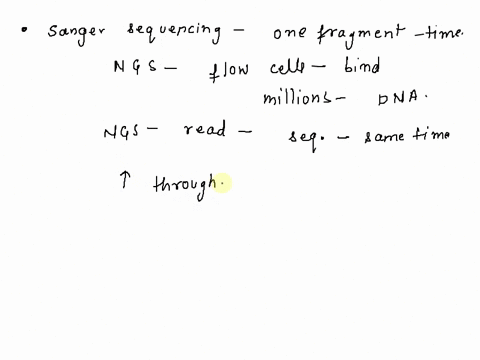 • Sanger sequencing - one fragment - time.
NGS - flow cells - bind
millions - DNA.
NGS - read - seq. - same time
↑ through.